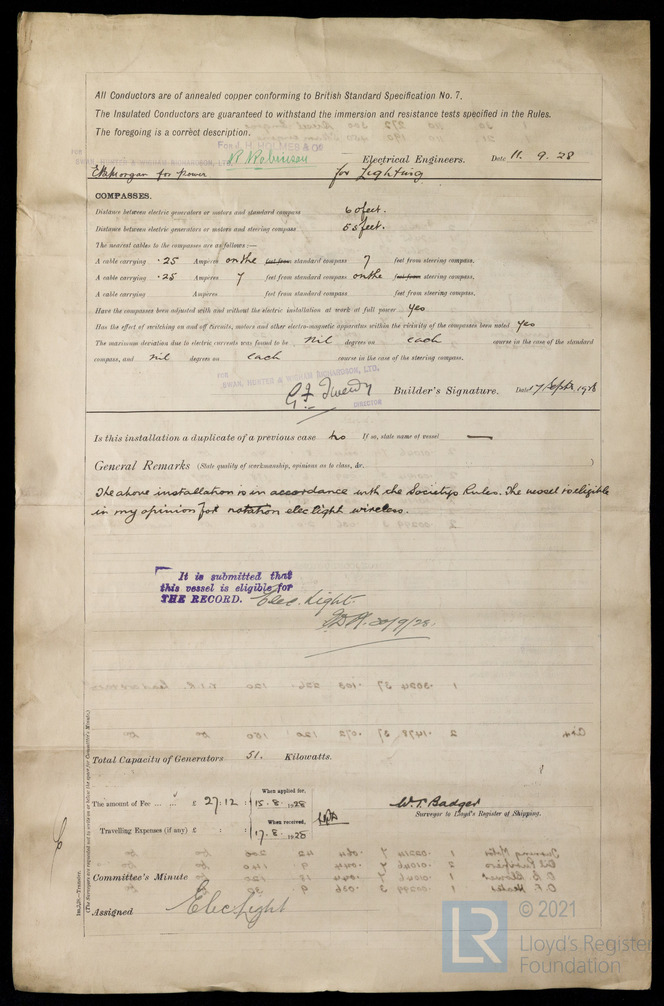 All Conductors are of annealed copper conforming to British Standard Specification No. 7.
The Insulated Conductors are guaranteed to withstand the immersion and resistance tests specified in the Rules.
The foregoing is a correct description.
FOR J. H. HOLMES & Co
FOR
SWAN, HUNTER & WIGHAM RICHARDSON, LTD.
R Robinson Electrical Engineers. Date 11. 9. 28
for power for Lighting
COMPASSES.
Distance between electric generators or motors and standard compass 60 feet.
Distance between electric generators or motors and steering compass 55 feet.
The nearest cables to the compasses are as follows:—
A cable carrying .25 Ampères on the feet from standard compass 7 feet from steering compass.
A cable carrying .25 Ampères 7 feet from standard compass on the feet from steering compass.
A cable carrying Ampères feet from standard compass feet from steering compass.
Have the compasses been adjusted with and without the electric installation at work at full power yes
Has the effect of switching on and off circuits, motors and other electro-magnetic apparatus within the vicinity of the compasses been noted yes
The maximum deviation due to electric currents was found to be nil degrees on each course in the case of the standard
compass, and nil degrees on each course in the case of the steering compass.
FOR
SWAN, HUNTER & WIGHAM RICHARDSON, LTD.
G F Tweedy Builder's Signature. Date 17 Sept. 1928
DIRECTOR
Is this installation a duplicate of a previous case no If so, state name of vessel —
General Remarks (State quality of workmanship, opinions as to class, &c. )
The above installation is in accordance with the Society's Rules. The vessel is eligible
in my opinion for notation elec light wireless.
It is submitted that
this vessel is eligible for
THE RECORD. Elec. Light.
20/9/28.
Total Capacity of Generators 51. Kilowatts.
The amount of Fee ... £ 27:12 : When applied for, 15. 8. 1928
Travelling Expenses (if any) £ : : When received, 17. 8. 1928
W. T. Badger
Surveyor to Lloyd's Register of Shipping.
Committee's Minute
Assigned Elec Light
Im.3,28.—Transfer.
(The Surveyors are requested not to write on or below the space for Committee's Minute.)
LR
© 2021
Lloyd's Register
Foundation